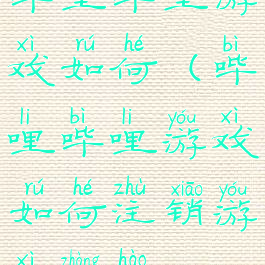 游
xì rú hé bì
戏如何（哔
li bì li yóu xì
哩哔哩游戏
rú hé zhù xiāo yóu
如何注销游
xì zhàng hào